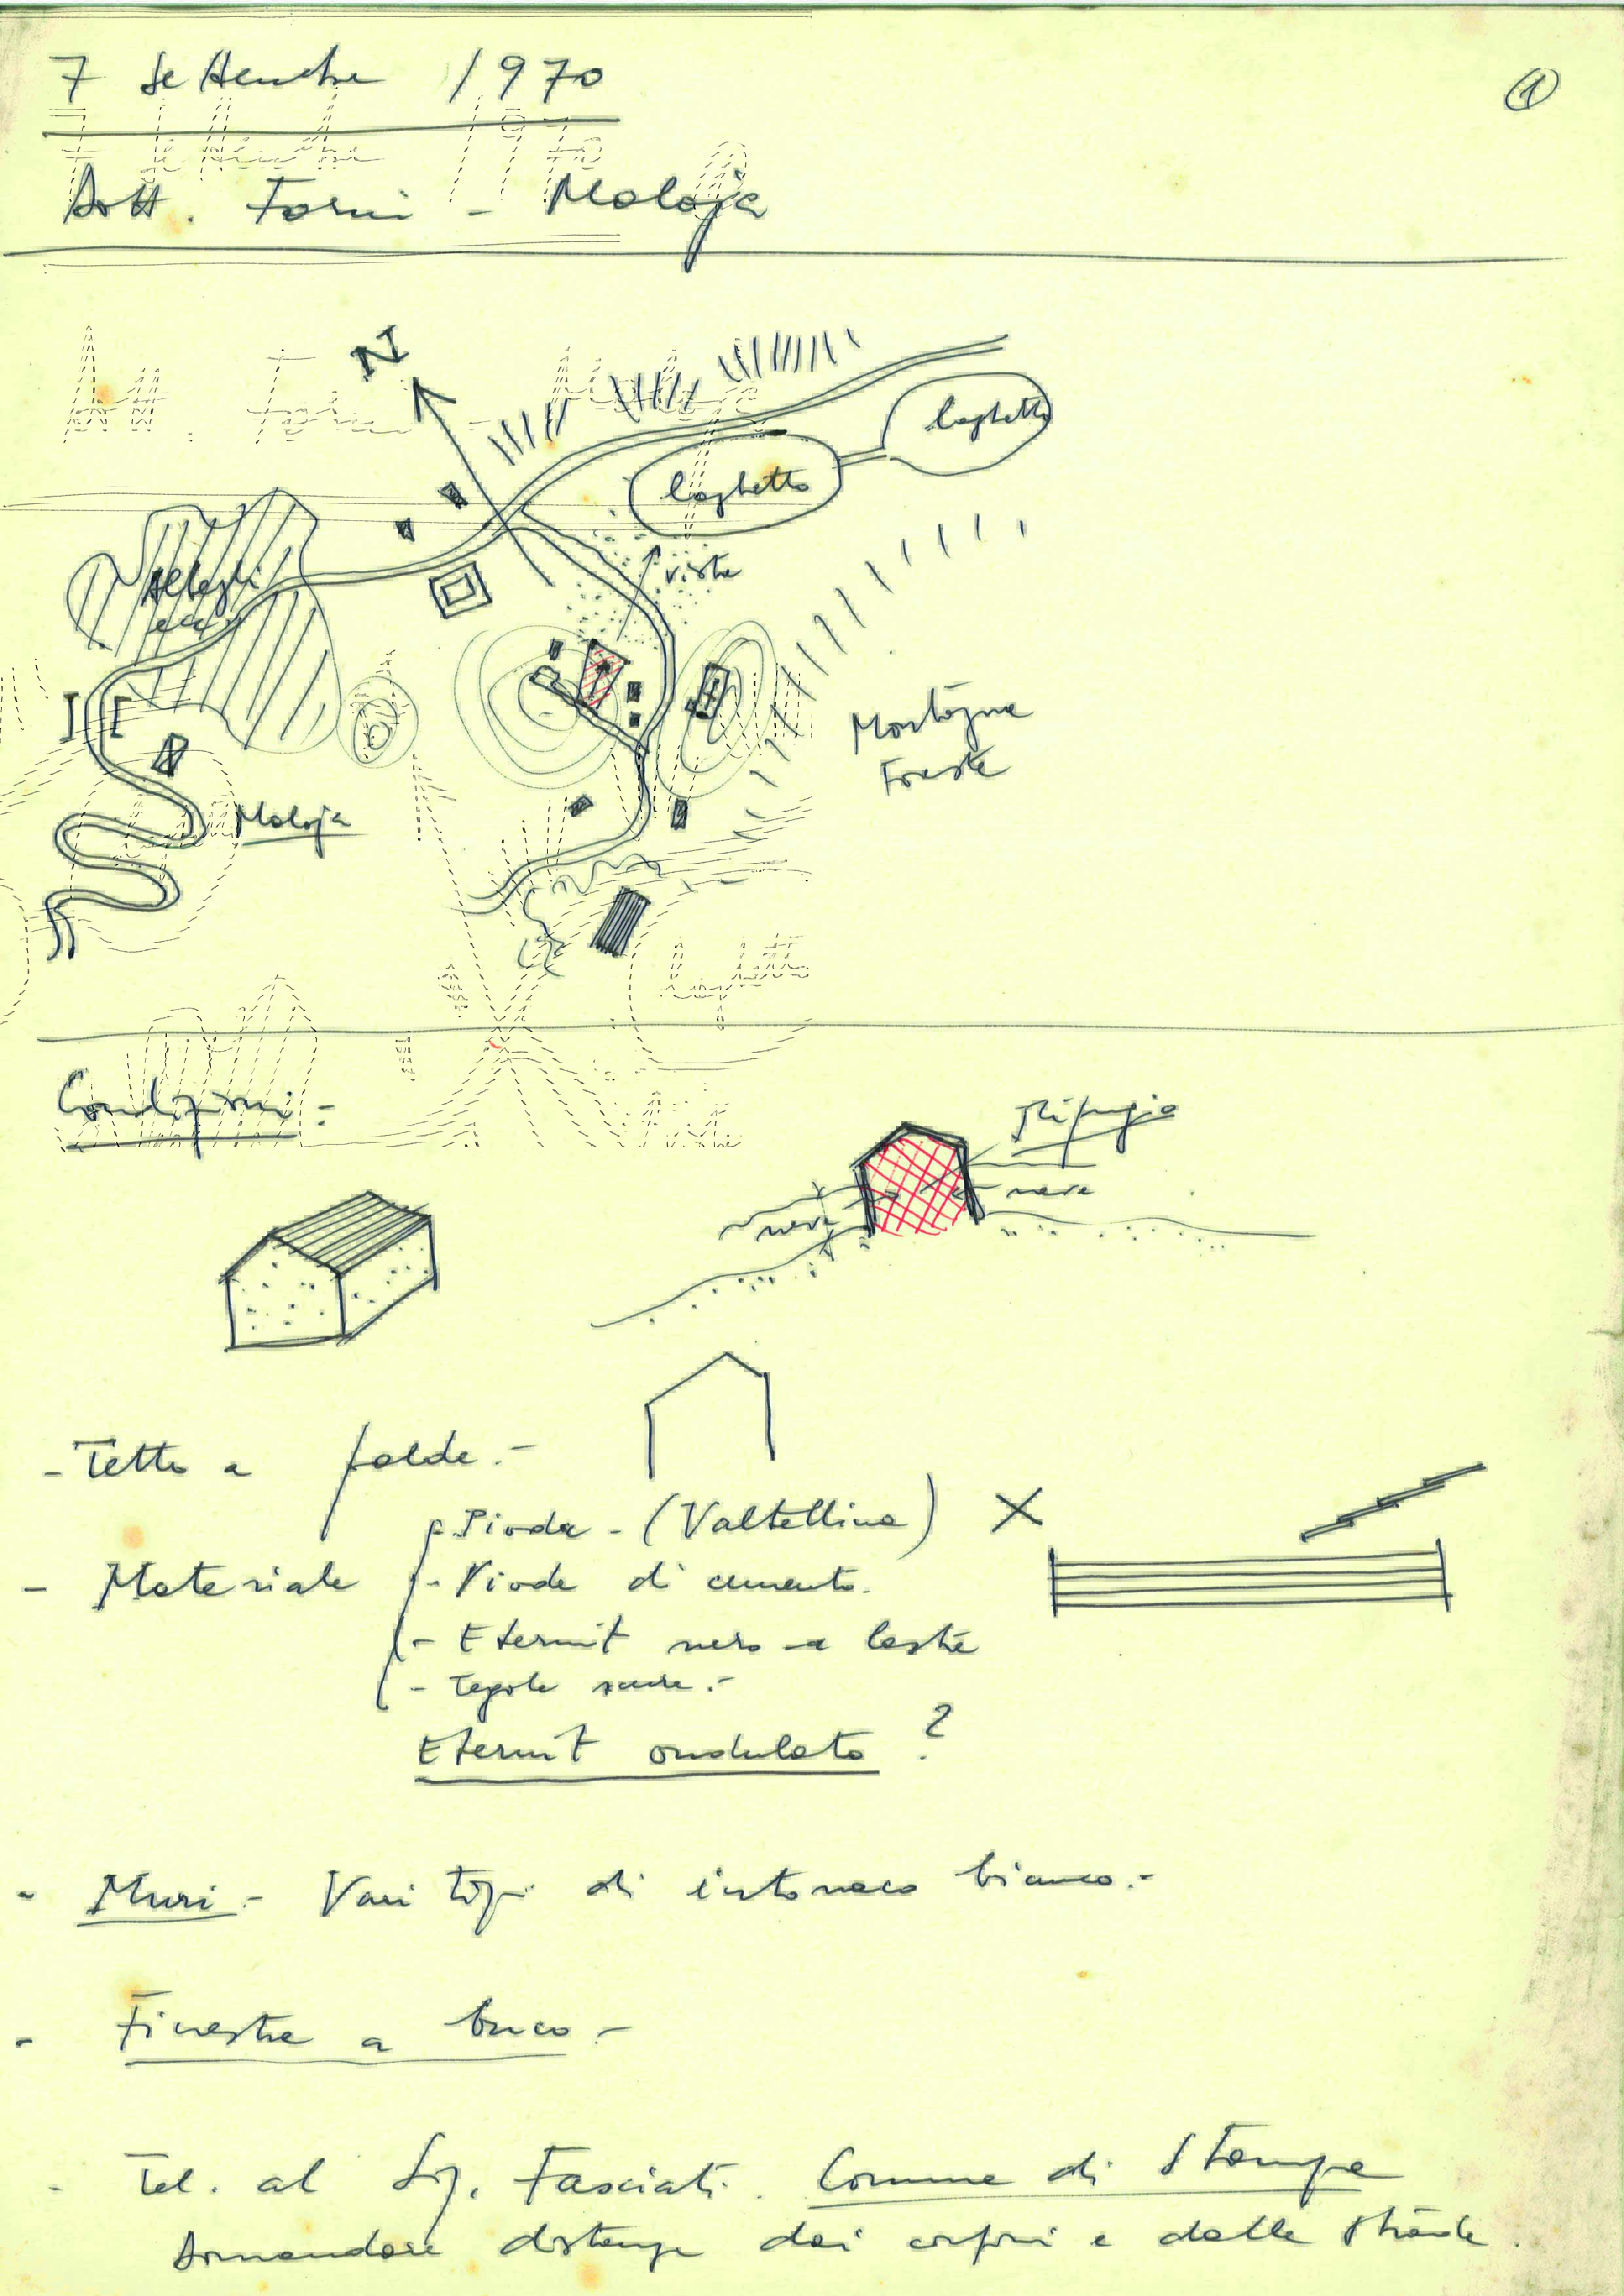 7 Settembre 1970
①
Dott. Forni - Maloja
N
laghetto
laghetto
vista
Alberghi
ecc.
Montagna
Foreste
Maloja
Condizioni:
Rifugio
neve
neve
- Tetto a falde.-
- Piode - (Valtellina) X
- Materiale
- Piode di cemento.
- Eternit nero a lastre
- Tegole scure.-
Eternit ondulato ?
- Muri - Vari tipi di intonaco bianco.-
- Finestre a buco -
- Tel. al Sig. Fasciati. Comune di Stampa
Domandare distanze dai confini e dalle strade.